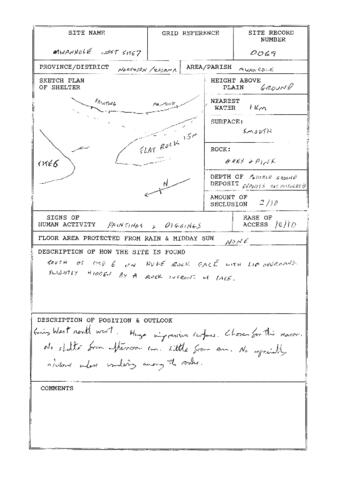 SITE NAME
GRID REFERENCE
SITE RECORD NUMBER
0069
PROVINCE/DISTRICT NORTHERN/KASAMA
AREA/PARISH
SKETCH PLAN OF SHELTER
PAINTING
FLAT ROCK 15m
SITE 6
N
HEIGHT ABOVE PLAIN GROUND
NEAREST WATER 1 KM
SURFACE:
SMOOTH
ROCK:
GREY & PINK
DEPTH OF DEPOSIT
AMOUNT OF SECLUSION 2/10
SIGNS OF HUMAN ACTIVITY PAINTINGS & DIGGINGS
EASE OF ACCESS 10/10
FLOOR AREA PROTECTED FROM RAIN & MIDDAY SUN NONE
DESCRIPTION OF HOW THE SITE IS FOUND
SOUTH OF SITE 6 ON HUGE ROCK FACE WITH LIP OVERHANG.
SLIGHTLY HIDDEN BY A ROCK INFRONT OF FACE.
DESCRIPTION OF POSITION & OUTLOOK
Facing West north west. Huge impressive surface. Chosen for this reason.
No shelter from afternoon sun. Little from rain. No specially
unless wandering among the rocks.
COMMENTS